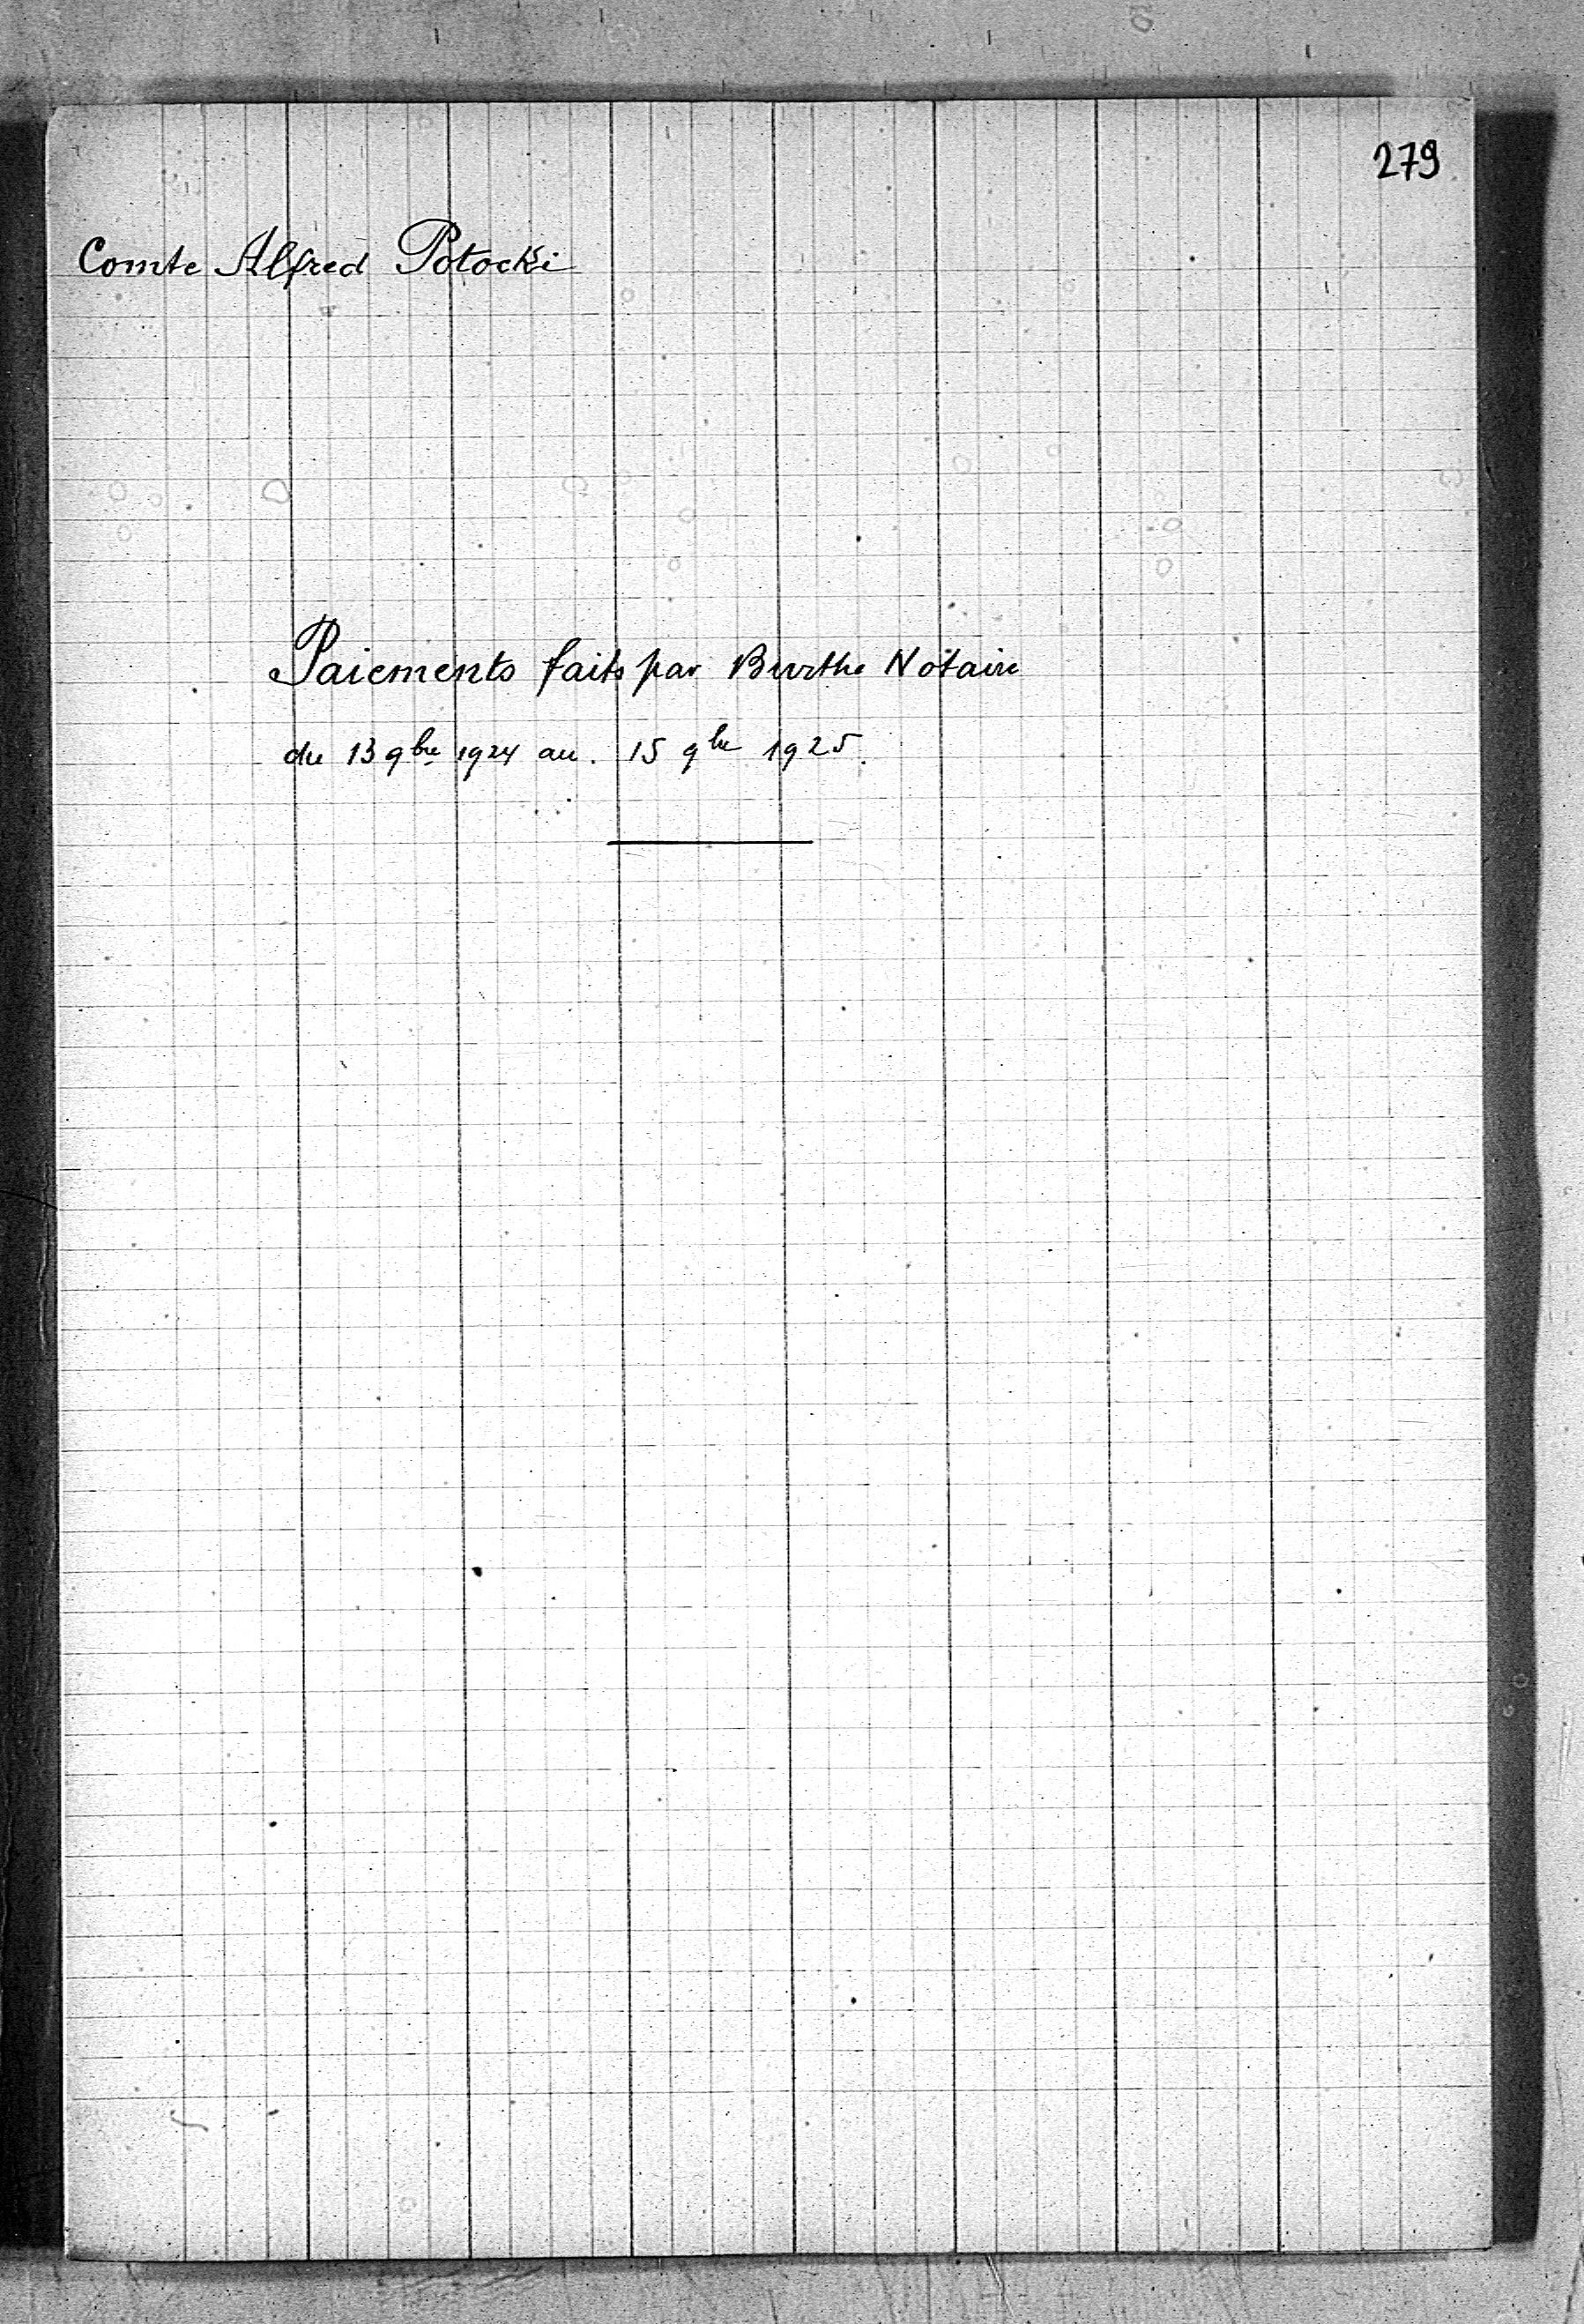 279
Comte Alfred Potocki
Paiements faits par Burthe Notaire
du 13 9bre 1924 au. 15 9bre 1925.